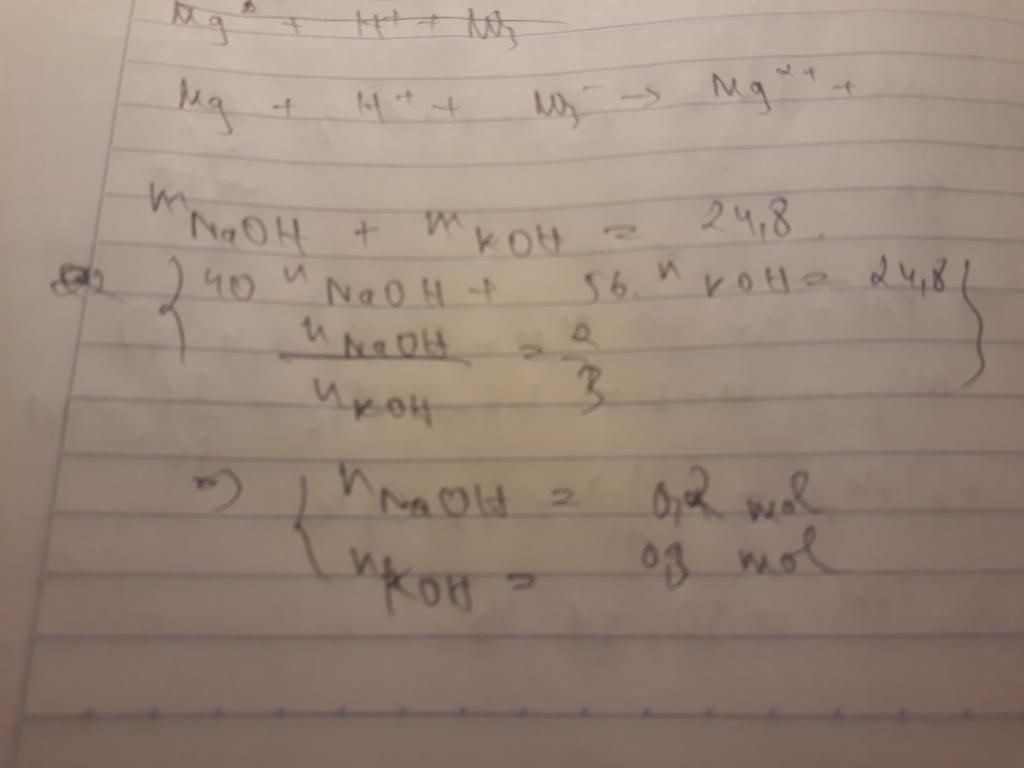 Mg + H⁺ + NO₃
Mg + H⁺ + NO₃⁻ → Mg²⁺ +
m NaOH + m KOH = 24,8
{ 40 n NaOH + 56. n KOH = 24,8 }
n NaOH / n KOH = 2/3
=> { n NaOH = 0,2 mol
n KOH = 03 mol